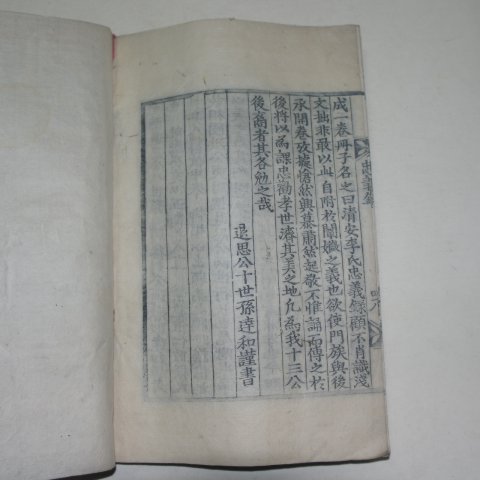 忠義錄
成一卷冊子名之曰清安李氏忠義錄顧不肖識淺
文拙非敢以此自附於闡幽之義也欲使門族與後
承開卷攷據愴然興慕肅然起敬不惟誦而傳之於
後將以為課忠勸孝世濟其美之地凡為我十三公
後裔者其各勉之哉
退思公十世孫達和謹書